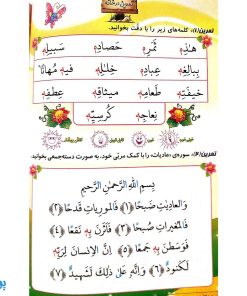 تمرین در خانه
تمرین(۱): کلمه‌های زیر را با دقّت بخوانید.
هٰذِهٖ ثَمَرِهٖ حَصادِهٖ سَبیلِهٖ
بِبالِغِهٖ عِبادِهٖ خِلالِهٖ فیهٖ مُهانًا
خیفَتِهٖ طَعامِهٖ میثاقِهٖ عِطفِهٖ
نِعاجِهٖ کُرسِیُّهُ
تمرین(۲): سوره‌ی «عادیات» را با کمک مربّی خود، به صورت دسته‌جمعی بخوانید.
بِسمِ اللّٰهِ الرَّحمٰنِ الرَّحیمِ
وَالعادِیاتِ ضَبحًا ﴿۱﴾ فَالمورِیاتِ قَدحًا ﴿۲﴾
فَالمُغیراتِ صُبحًا ﴿۳﴾ فَاَثَرنَ بِهٖ نَقعًا ﴿۴﴾
فَوَسَطنَ بِهٖ جَمعًا ﴿۵﴾ اِنَّ الاِنسانَ لِرَبِّهٖ
لَکَنودٌ ﴿۶﴾ وَاِنَّهٗ عَلیٰ ذٰلِکَ لَشَهیدٌ ﴿۷﴾